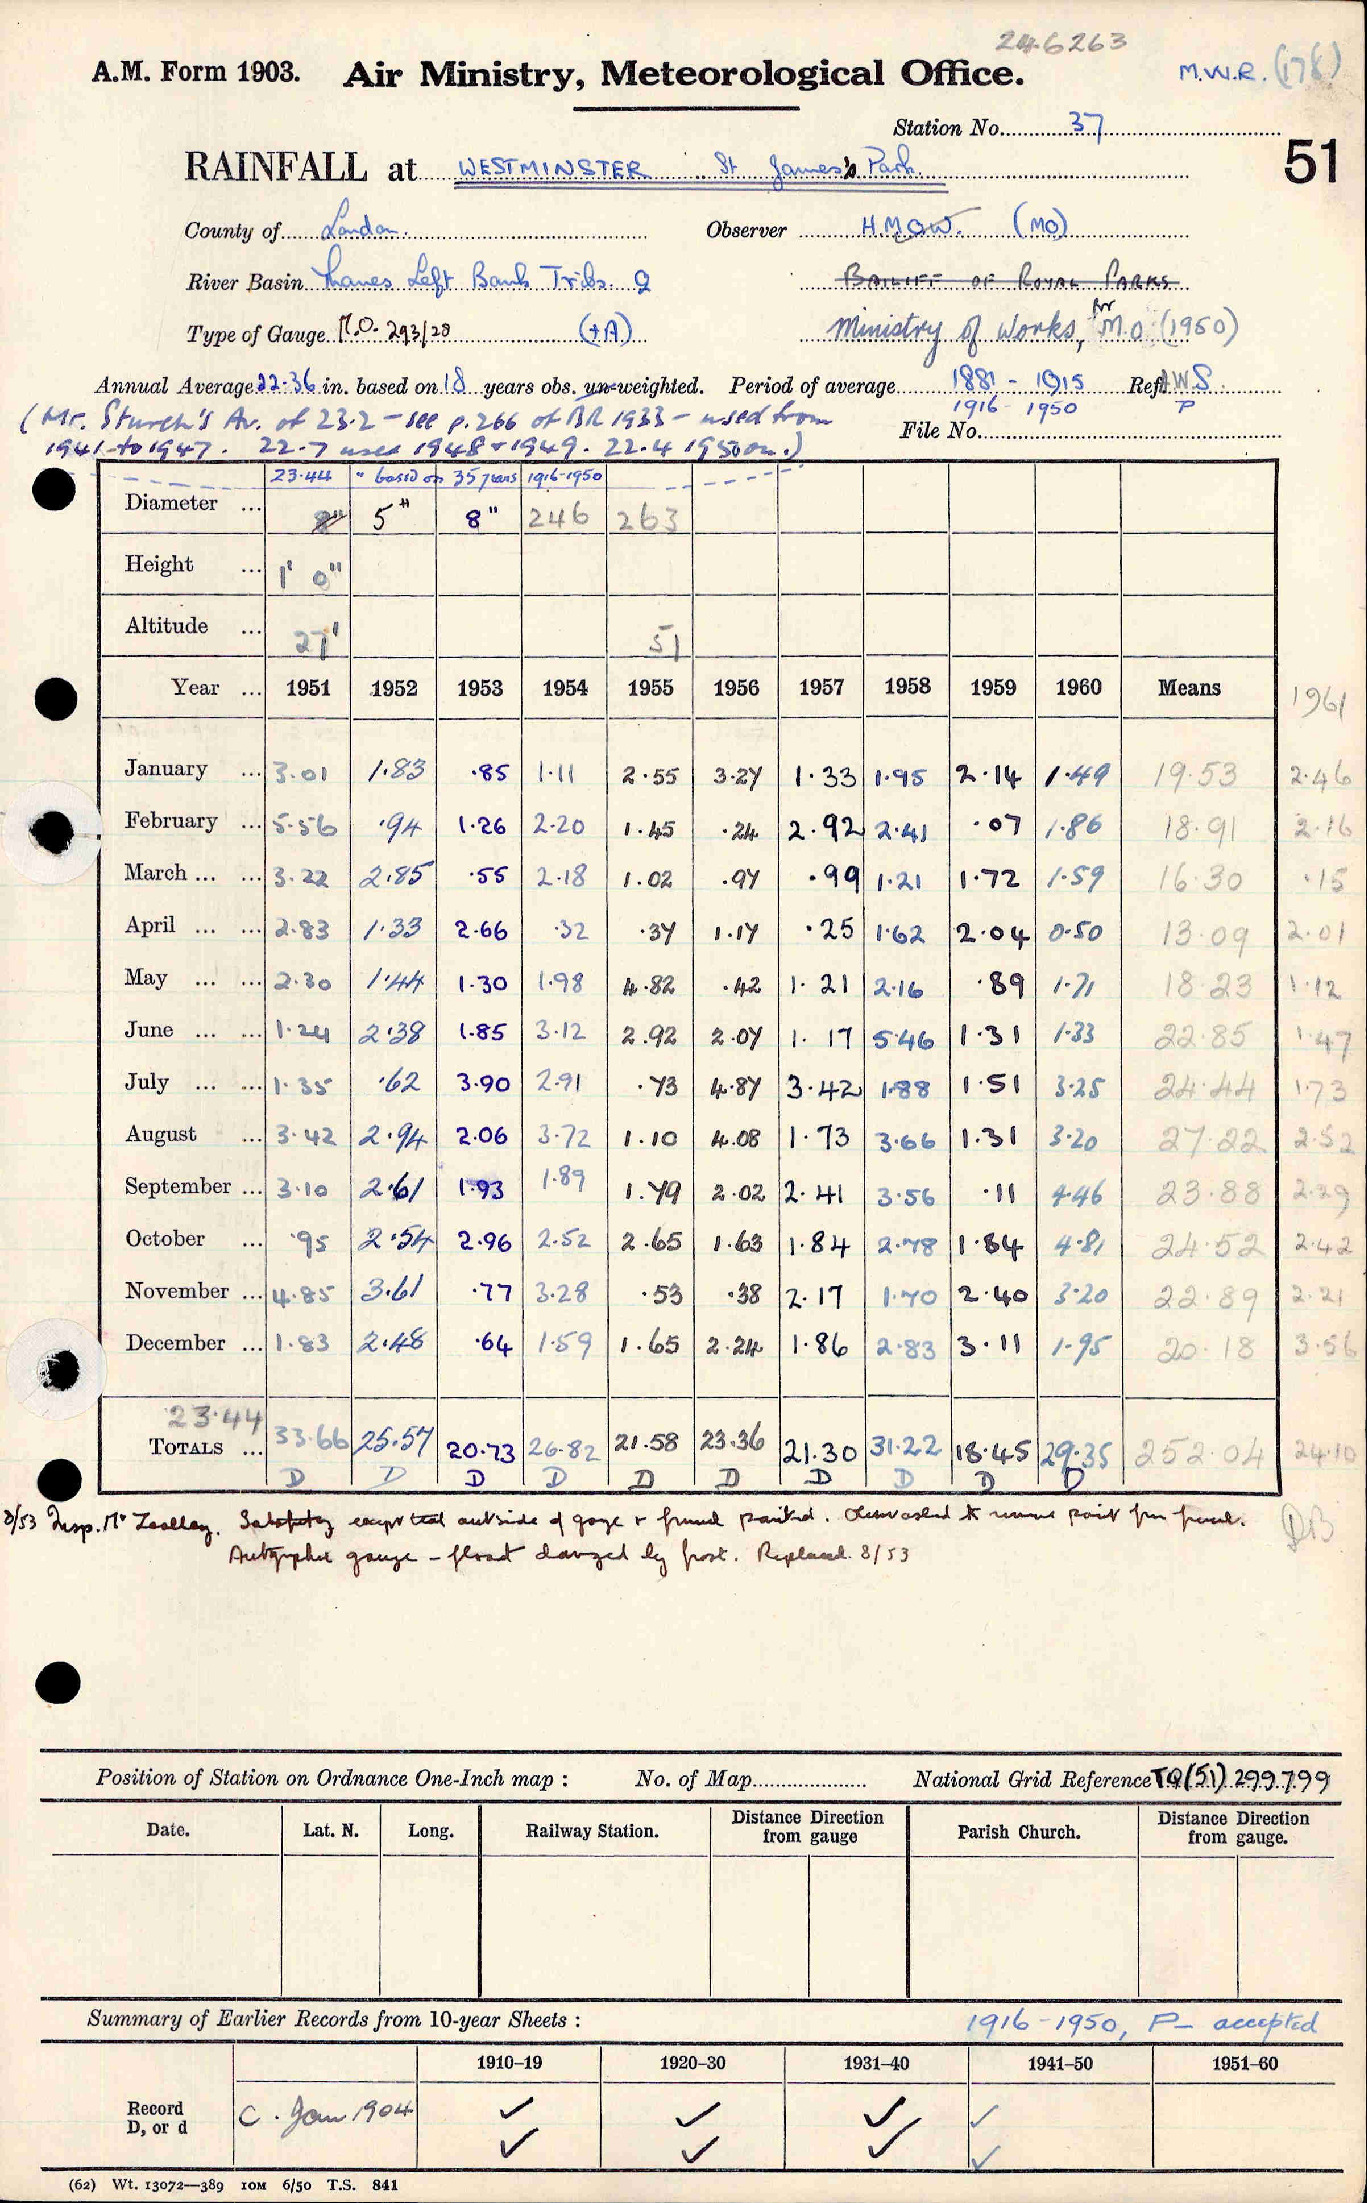 246263
A.M. Form 1903. Air Ministry, Meteorological Office. M.W.R. (178)
Station No. 37
51
RAINFALL at WESTMINSTER St James's Park
County of London. Observer H.M.O.W. (MO)
River Basin Thames Left Bank Tribs. Q BAILIFF OF ROYAL PARKS
Type of Gauge M.O. 293/28 (+A) Ministry of Works, for M.O. (1950)
Annual Average 22.36 in. based on 18 years obs. un-weighted. Period of average 1881 - 1915 Ref. AWS.
1916 - 1950 P
(Mr. Sturch's Av. of 23.2 - see p.266 of BR 1933 - used from File No.
1941 to 1947. 22.7 used 1948 & 1949. 22.4 1950 on.)
23.44 " based on 35 years 1916-1950
Diameter ... 8" 5" 8" 246 263
Height ... 1' 0"
Altitude ... 27' 51
Year ... 1951 1952 1953 1954 1955 1956 1957 1958 1959 1960 Means 1961
January ... 3.01 1.83 .85 1.11 2.55 3.27 1.33 1.95 2.14 1.49 19.53 2.46
February ... 5.56 .94 1.26 2.20 1.45 .24 2.92 2.41 .07 1.86 18.91 2.16
March ... ... 3.22 2.85 .55 2.18 1.02 .97 .99 1.21 1.72 1.59 16.30 .15
April ... ... 2.83 1.33 2.66 .32 .37 1.17 .25 1.62 2.04 0.50 13.09 2.01
May ... ... 2.30 1.44 1.30 1.98 4.82 .42 1.21 2.16 .89 1.71 18.23 1.12
June ... ... 1.24 2.38 1.85 3.12 2.92 2.07 1.17 5.46 1.31 1.33 22.85 1.47
July ... ... 1.35 .62 3.90 2.91 .73 4.87 3.42 1.88 1.51 3.25 24.44 1.73
August ... 3.42 2.94 2.06 3.72 1.10 4.08 1.73 3.66 1.31 3.20 27.22 2.52
September ... 3.10 2.61 1.93 1.89 1.79 2.02 2.41 3.56 .11 4.46 23.88 2.29
October ... .95 2.54 2.96 2.52 2.65 1.63 1.84 2.78 1.84 4.81 24.52 2.42
November ... 4.85 3.61 .77 3.28 .53 .38 2.17 1.70 2.40 3.20 22.89 2.21
December ... 1.83 2.48 .64 1.59 1.65 2.24 1.86 2.83 3.11 1.95 20.18 3.56
23.44
TOTALS ... 33.66 25.57 20.73 26.82 21.58 23.36 21.30 31.22 18.45 29.35 252.04 24.10
D D D D D D D D D D
8/53 Insp. Mr Satisfactory except that outside of gauge & funnel painted. Observer asked to remove paint from funnel. DB
Autographic gauge - float damaged by frost. Replaced 8/53
Position of Station on Ordnance One-Inch map : No. of Map National Grid Reference TQ(51) 299799
Date. Lat. N. Long. Railway Station. Distance Direction from gauge Parish Church. Distance Direction from gauge.
Summary of Earlier Records from 10-year Sheets : 1916-1950, P- accepted
1910–19 1920–30 1931–40 1941–50 1951–60
Record C. Jan 1904 ✓ ✓ ✓ ✓
D, or d ✓ ✓ ✓ ✓
(62) Wt. 13072—389 10M 6/50 T.S. 841